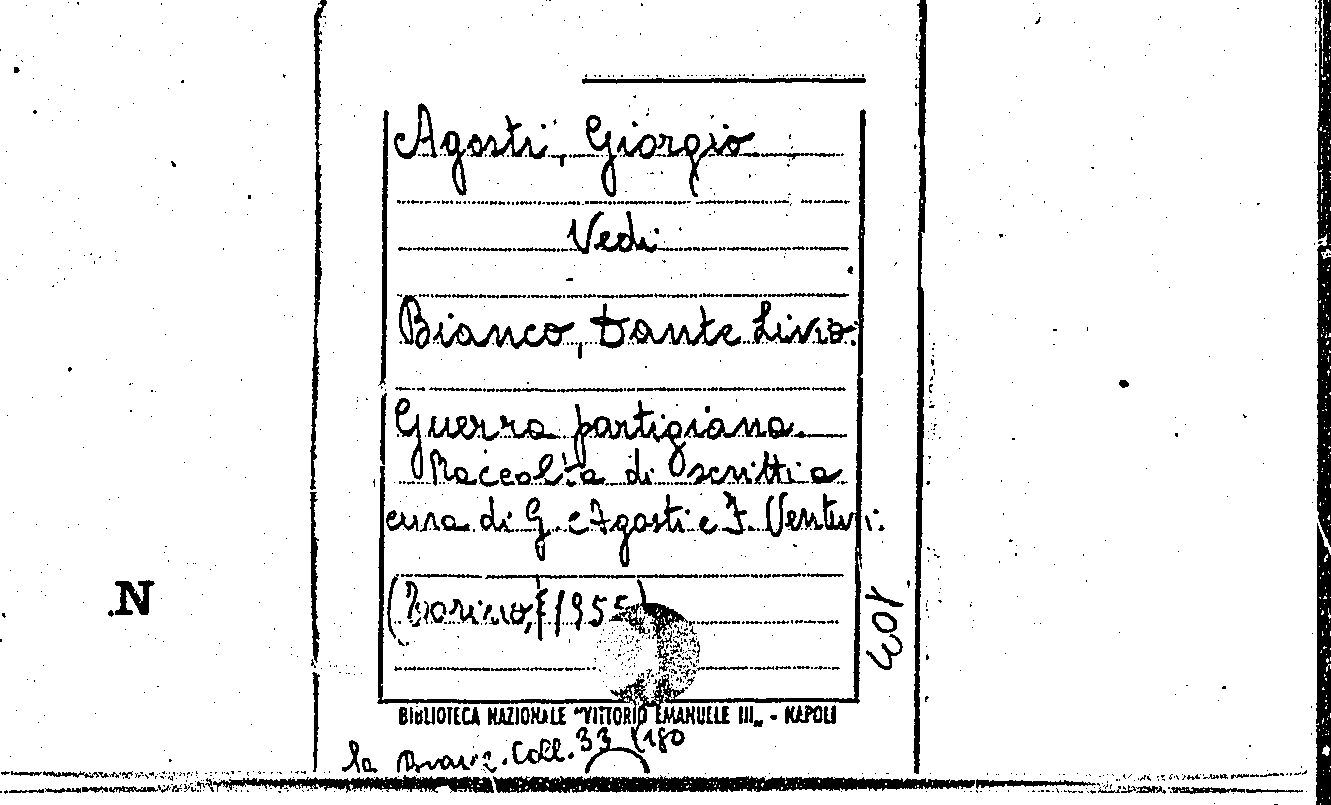 Agosti, Giorgio
Vedi
Bianco, Dante Livio.
Guerra partigiana.
Raccolta di scritti a
cura di G. Agosti e F. Venturi.
(Torino, 1955)
N
BIBLIOTECA NAZIONALE "VITTORIO EMANUELE III„ - NAPOLI
Coll. 33 (180